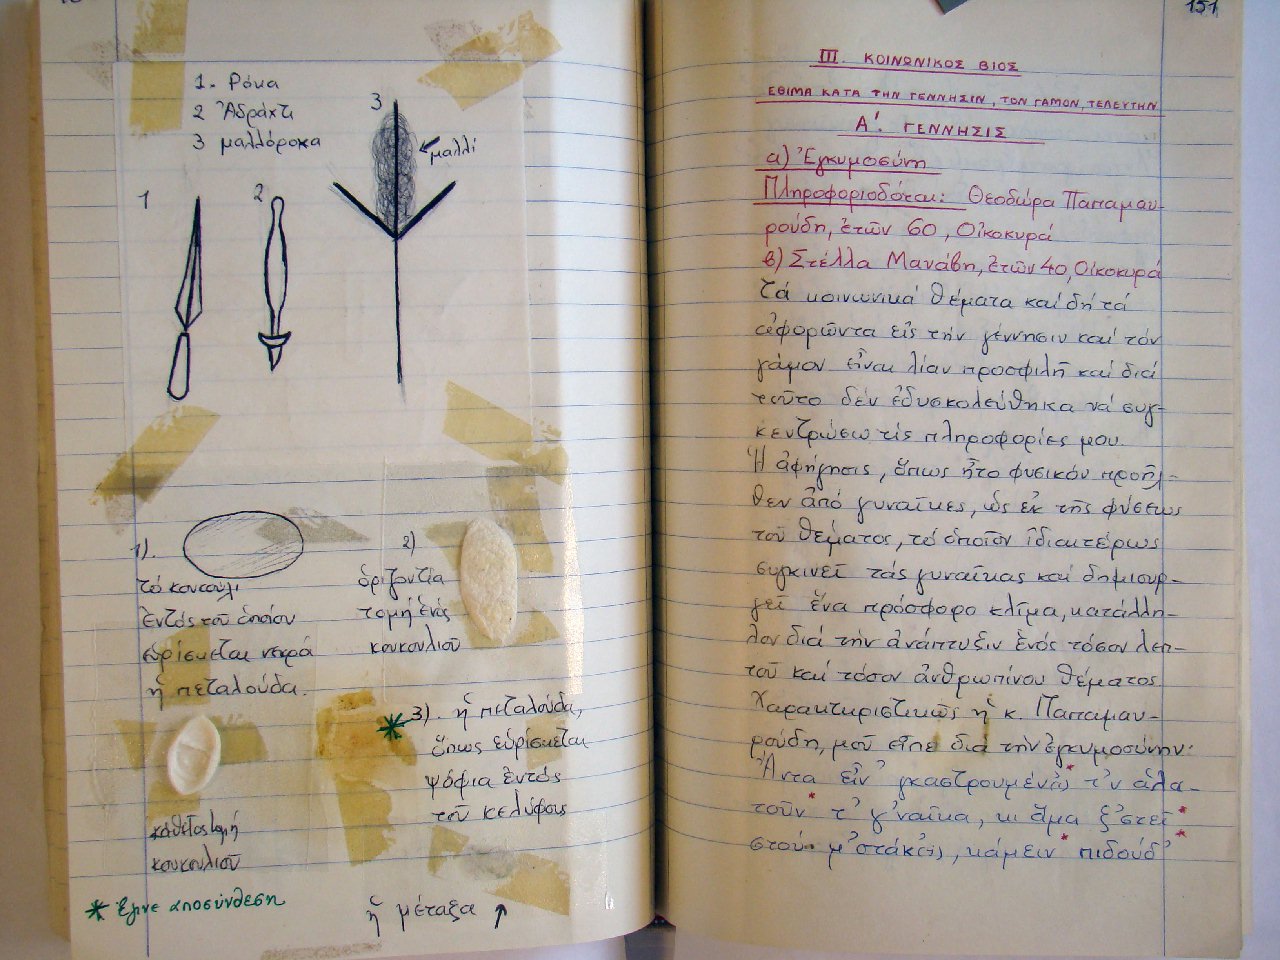 1. Ρόκα
2 Ἀδράχτι
3 μαλλόροκα
3
μαλλί
1
2
1).
τό κουκούλι
ἐντός τοῦ ὁποίου
εὑρίσκεται νεκρά
ἡ πεταλούδα.
2)
ὁριζοντία
τομή ἑνός
κουκουλιοῦ
3). ἡ πεταλούδα,
ὅπως εὑρίσκεται
ψόφια ἐντός
τοῦ κελύφους
κάθετος τομή
κουκουλιοῦ
* Ἔγινε αποσύνθεση
ἡ μέταξα
151
III. ΚΟΙΝΩΝΙΚΟΣ ΒΙΟΣ
ΕΘΙΜΑ ΚΑΤΑ ΤΗΝ ΓΕΝΝΗΣΙΝ, ΤΟΝ ΓΑΜΟΝ, ΤΕΛΕΥΤΗΝ
Α'. ΓΕΝΝΗΣΙΣ
α) Ἐγκυμοσύνη
Πληροφοριοδόται: Θεοδώρα Παπαμαυ-
ρούδη, ἐτῶν 60, Οἰκοκυρά
β) Στέλλα Μανάβη, ἐτῶν 40, Οἰκοκυρά
Τά κοινωνικά θέματα καί δή τά
ἀφορῶντα εἰς τήν γέννησιν καί τόν
γάμον εἶναι λίαν προσφιλῆ καί διά
τοῦτο δέν ἐδυσκολεύθηκα νά συγ-
κεντρώσω τίς πληροφορίες μου.
Ἡ ἀφήγησις, ὅπως ἦτο φυσικόν προῆλ-
θεν ἀπό γυναῖκες, ὡς ἐκ τῆς φύσεως
τοῦ θέματος, τό ὁποῖον ἰδιαιτέρως
συγκινεῖ τάς γυναῖκας καί δημιουρ-
γεῖ ἕνα πρόσφορο κλῖμα, κατάλλη-
λον διά τήν ἀνάπτυξιν ἑνός τόσον λεπ-
τοῦ καί τόσον ἀνθρωπίνου θέματος.
Χαρακτηριστικῶς ἡ κ. Παπαμαυ-
ρούδη, μοῦ εἶπε διά τήν ἐγκυμοσύνην:
Ἅντα εἶν' γκαστρουμέν(η)* τ'ν ἀλα-
τοῦν* τ' γ'ναῖκα, κι ἅμα ξ'στεῖ*
στού μ'στάκ(ι), κάμειν* πιδούδ'*